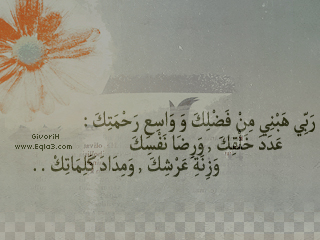 رَبِّي هَبْنِي مِنْ فَضْلِكَ وَ وَاسِعِ رَحْمَتِكَ :
عَدَدَ خَلْقِكَ , وَرِضَا نَفْسِكَ
وَزِنَةَ عَرْشِكَ , وَمِدَادَ كَلِمَاتِكَ . .
GivoriH
www.Eqla3.com